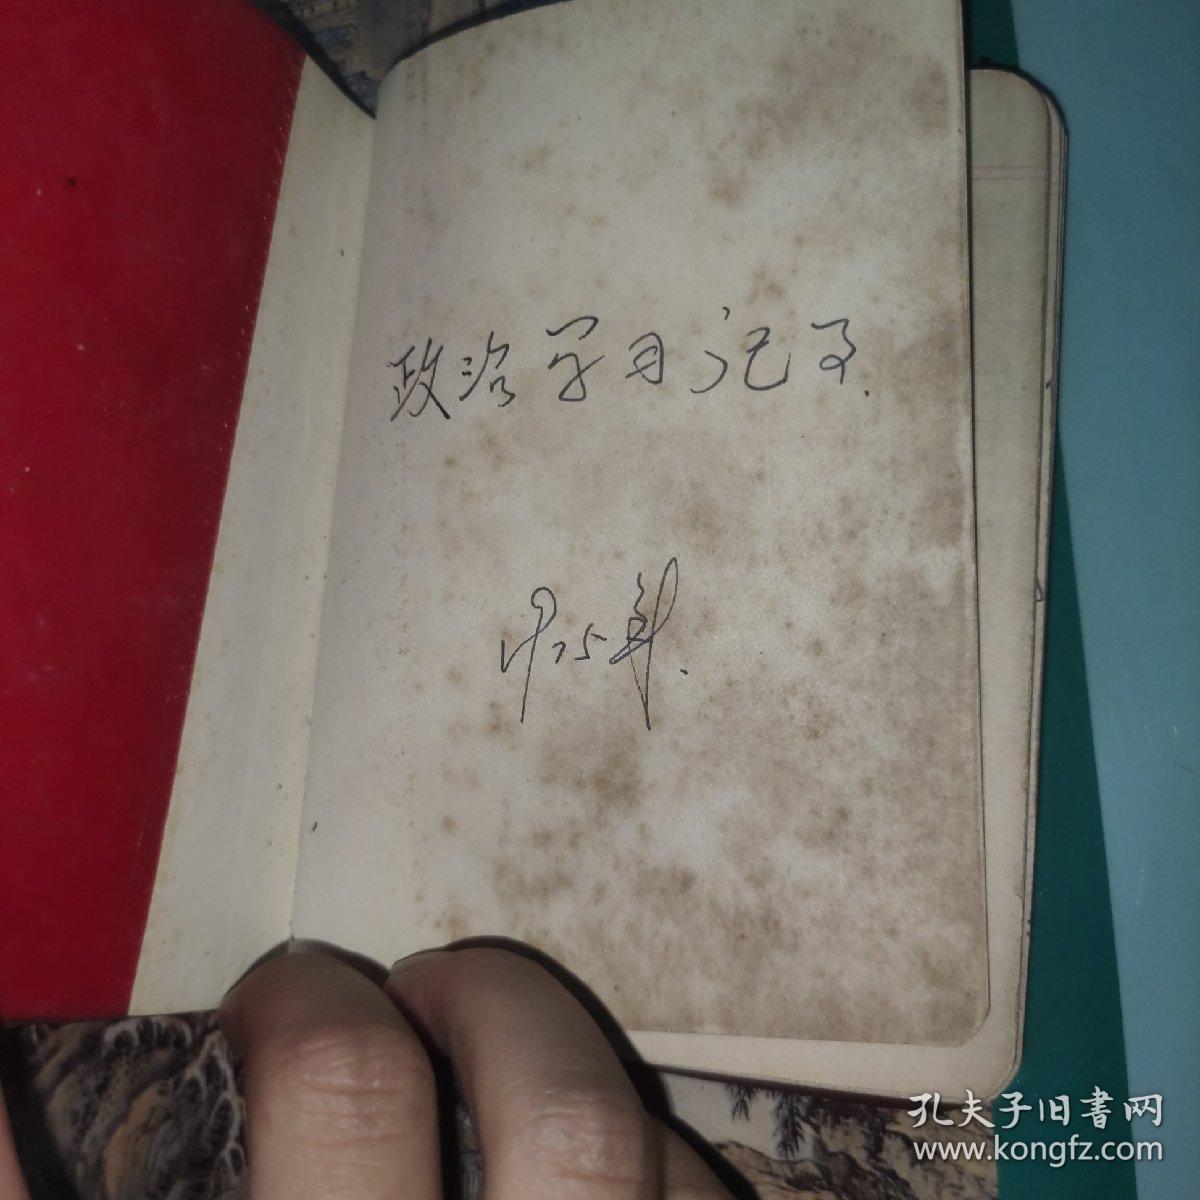 政治学习记录.
孔夫子旧書网
www.kongfz.com